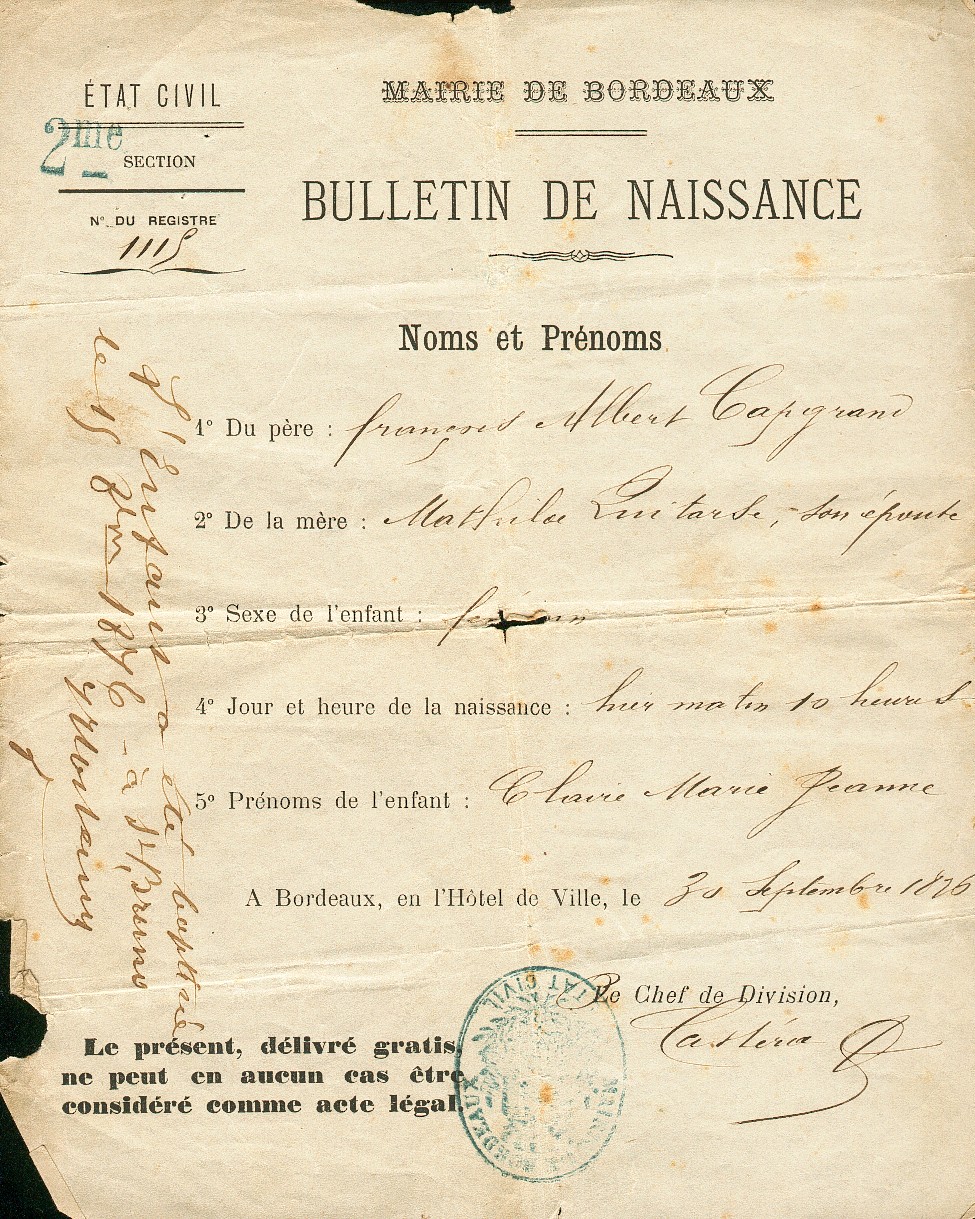 ÉTAT CIVIL
2me
SECTION
N° DU REGISTRE
1115
MAIRIE DE BORDEAUX
BULLETIN DE NAISSANCE
Noms et Prénoms
1° Du père : françois Albert Capgrand
2° De la mère : Mathilde son épouse
3° Sexe de l'enfant :
4° Jour et heure de la naissance : hier matin 10 heures
5° Prénoms de l'enfant : Claire Marie Jeanne
A Bordeaux, en l'Hôtel de Ville, le 30 Septembre 1876
Le Chef de Division,
Castéra
Le présent, délivré gratis,
ne peut en aucun cas être
considéré comme acte légal.
ÉTAT CIVIL
MAIRIE DE BORDEAUX
L'Enfant a été baptisé
le 15 1876 - à St Bruno